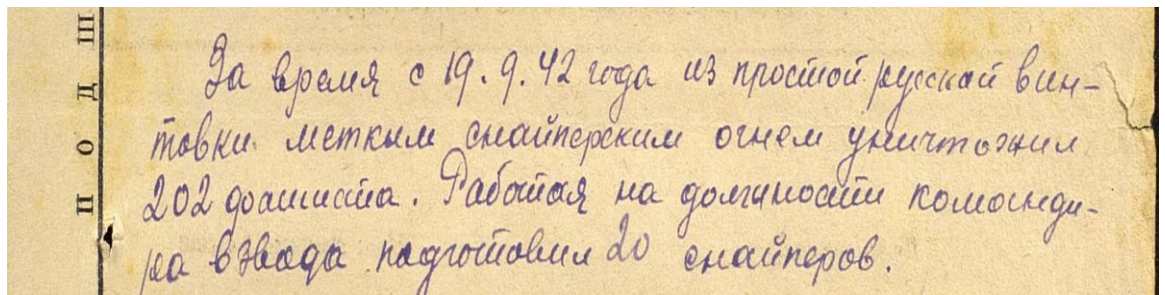 За время с 19.9.42 года из простой русской вин-
товки метким снайперским огнем уничтожил
202 фашиста. Работая на должности команди-
ра взвода подготовил 20 снайперов.
П О Д Ш